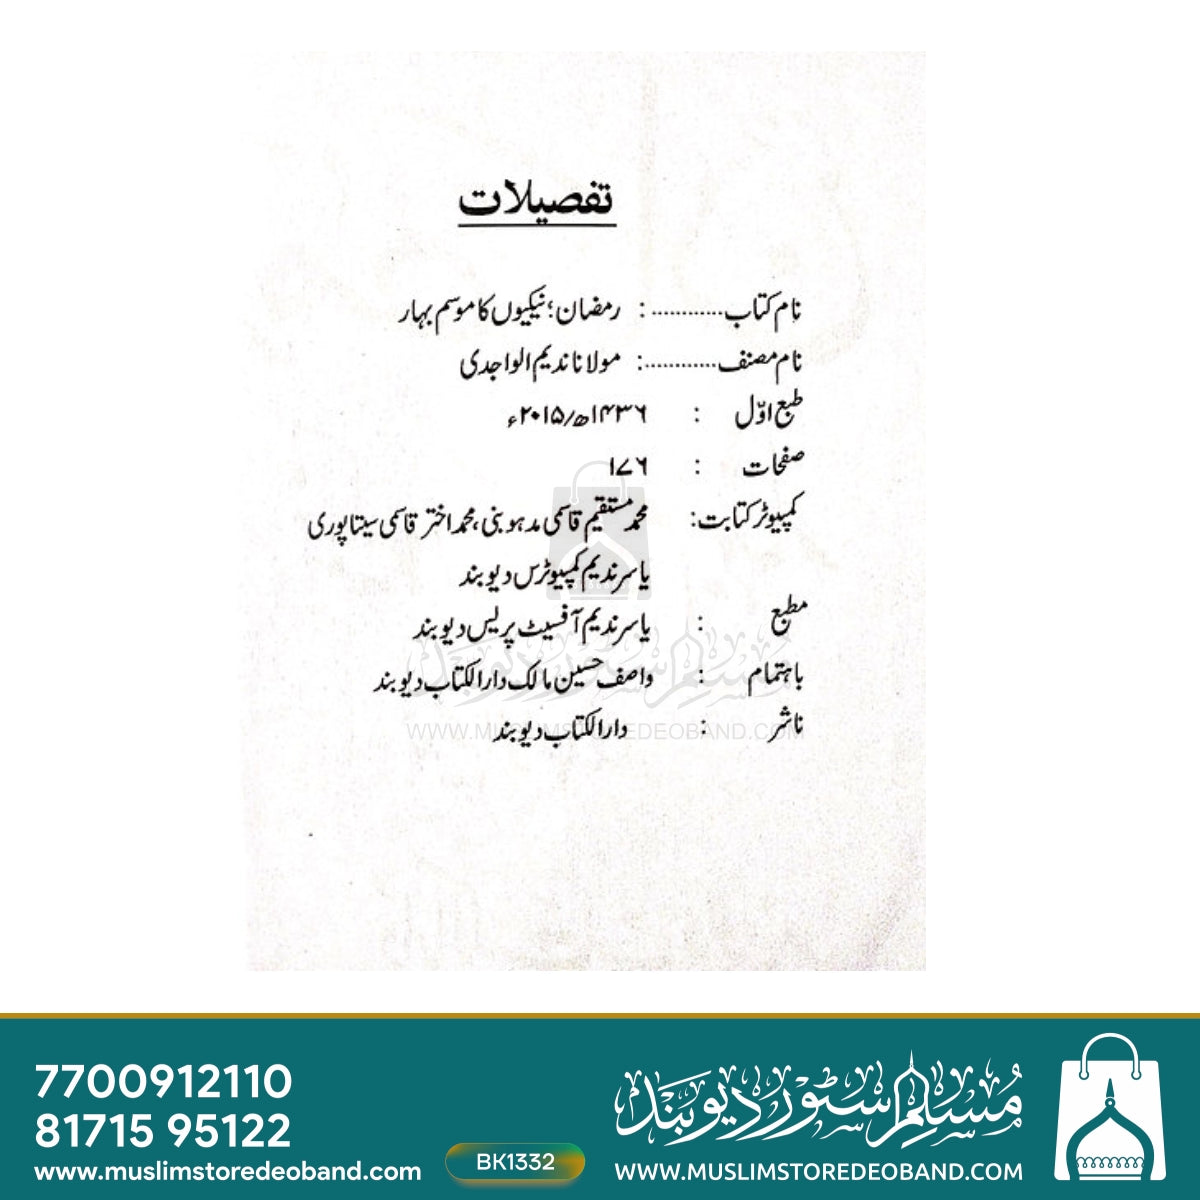 تفصیلات
نام کتاب ............ : رمضان؛ نیکیوں کا موسم بہار
نام مصنف ............ : مولانا ندیم الواجدی
طبع اوّل : ۱۴۳۶ھ/۲۰۱۵ء
صفحات : ۱۷۶
کمپیوٹر کتابت: محمد مستقیم قاسمی مدہوبنی، محمد اختر قاسمی سیتاپوری
یاسر ندیم کمپیوٹرس دیوبند
مطبع : یاسر ندیم آفسیٹ پریس دیوبند
باہتمام : واصف حسین مالک دارالکتاب دیوبند
ناشر : دارالکتاب دیوبند
مسلم سٹور دیوبند
WWW.MUSLIMSTOREDEOBAND.COM
7700912110
81715 95122
www.muslimstoredeoband.com
BK1332
مسلم سٹور دیوبند
WWW.MUSLIMSTOREDEOBAND.COM